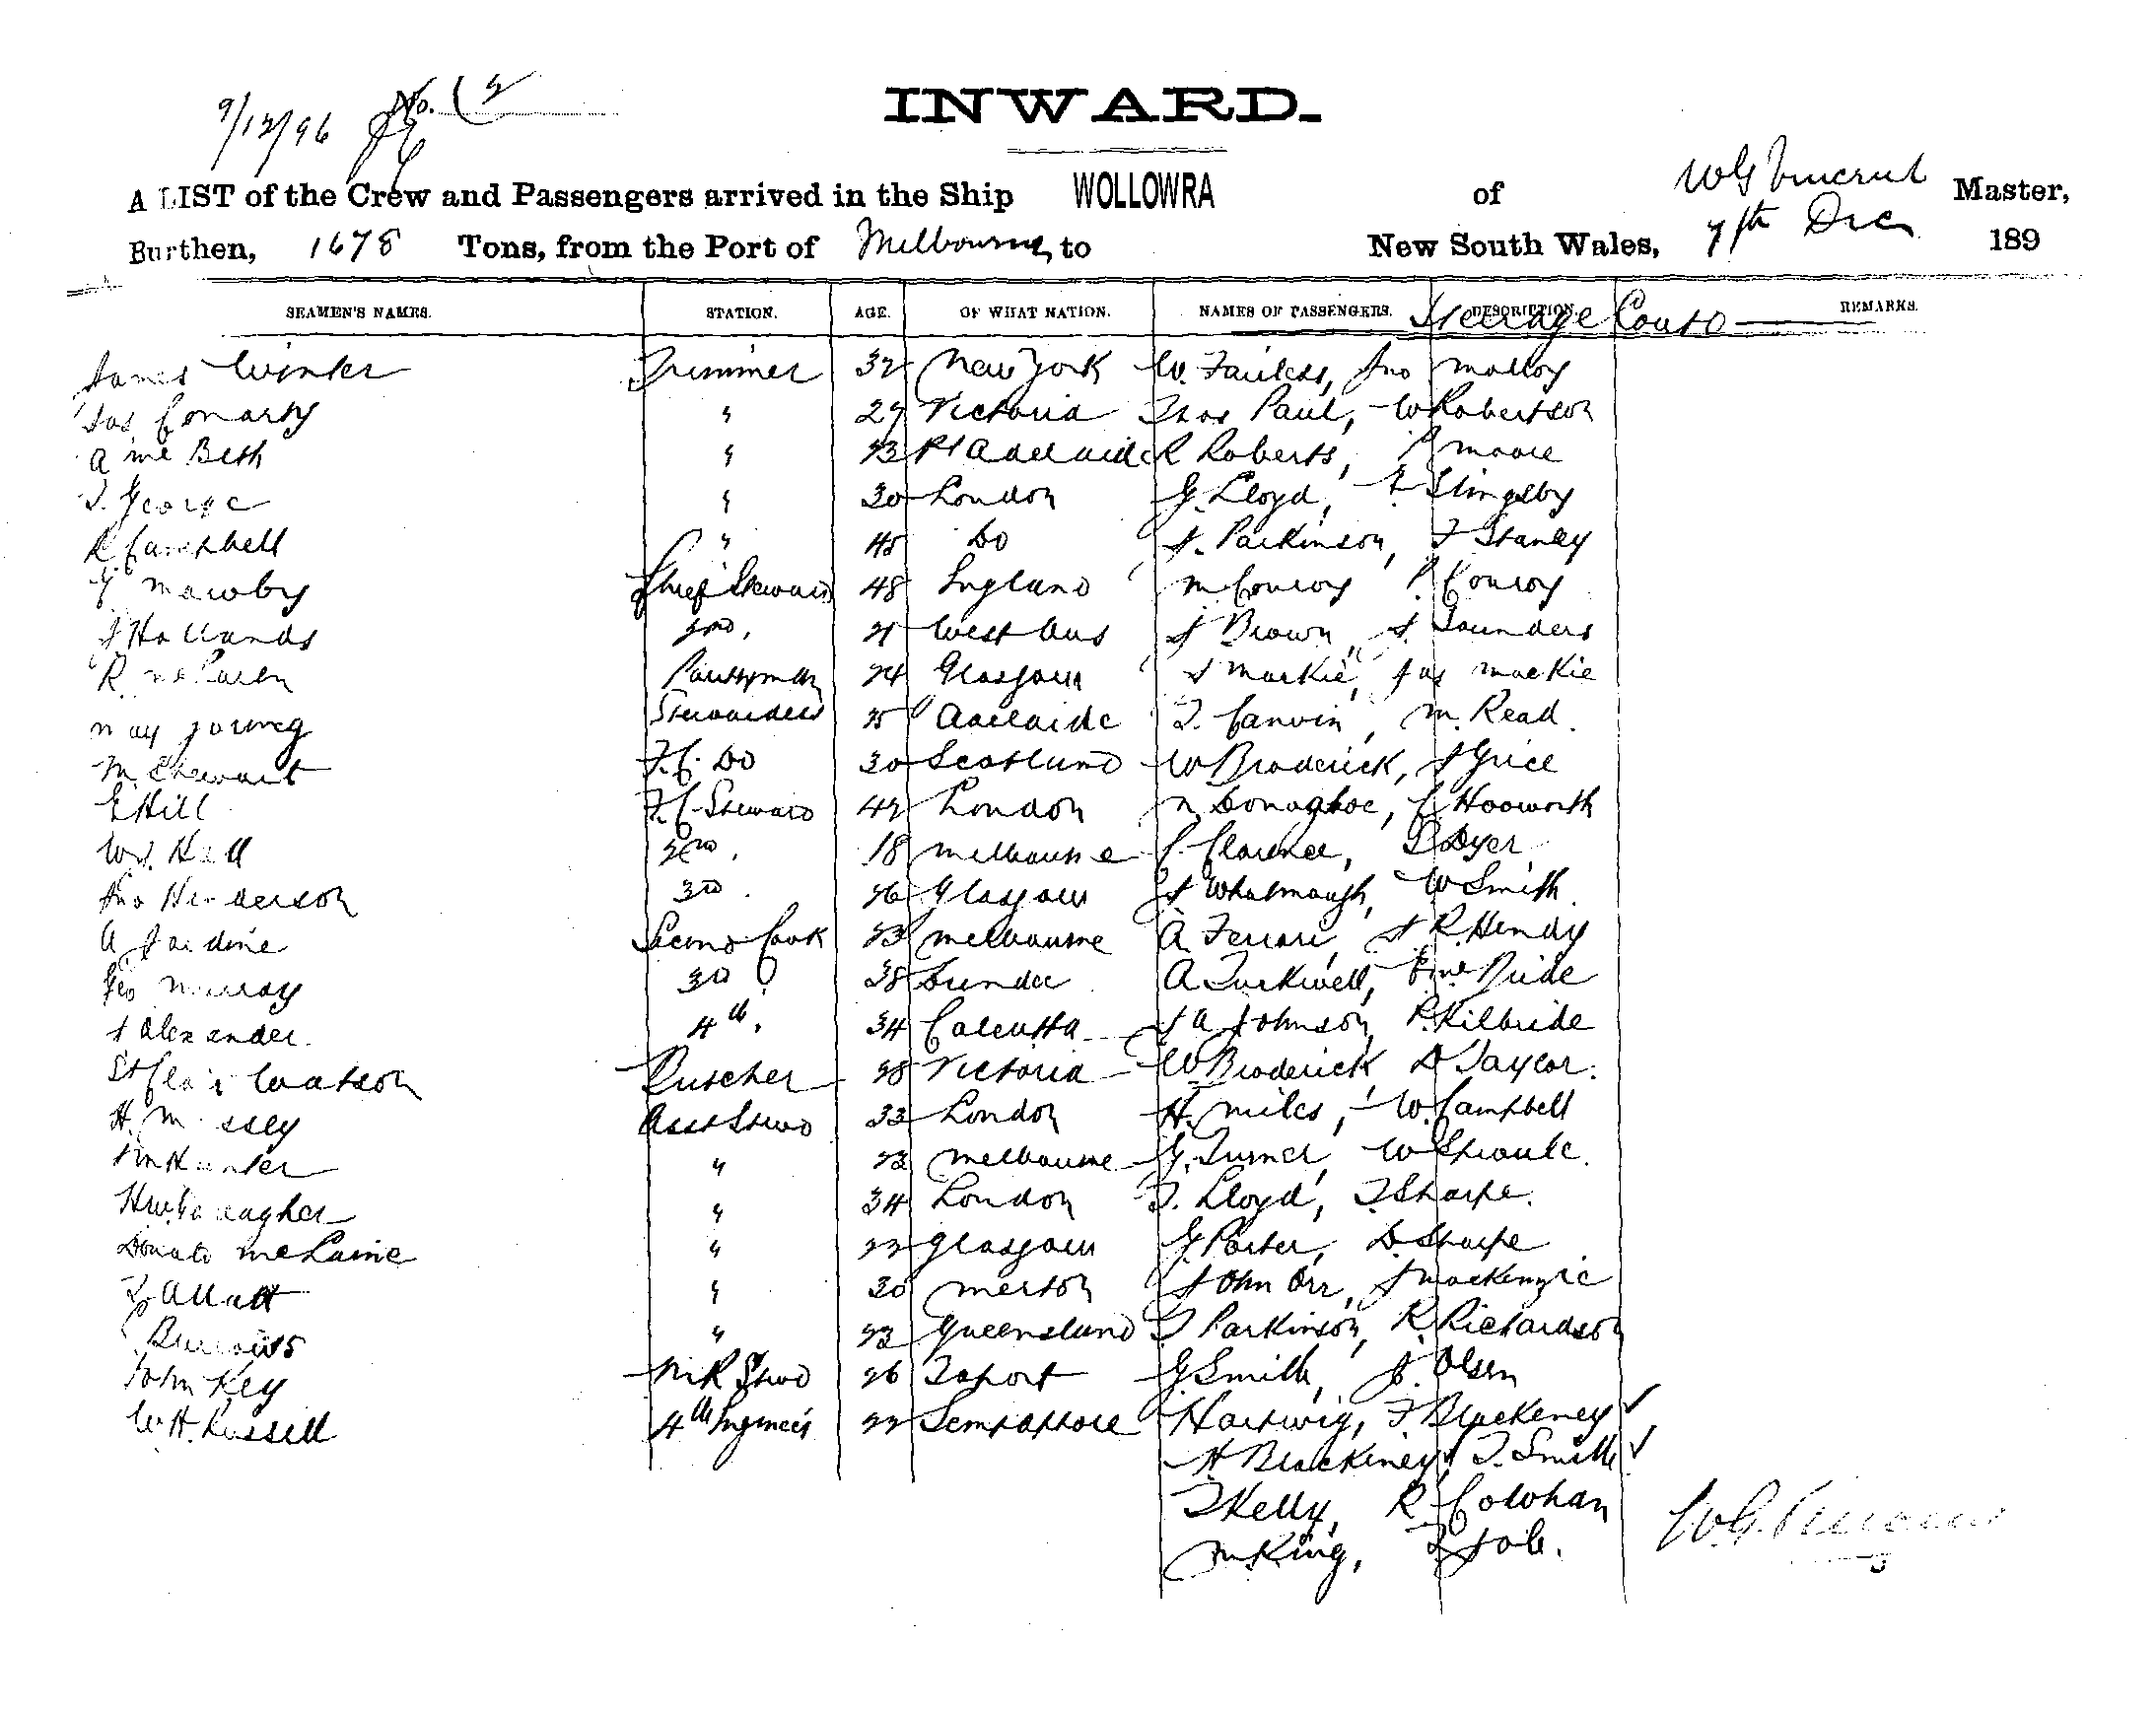 9/12/96 No. (2
INWARD.
A LIST of the Crew and Passengers arrived in the Ship WOLLOWRA of WG Vincent Master,
Burthen, 1678 Tons, from the Port of Melbourne to New South Wales, 7th Dec 189
SEAMEN'S NAMES. STATION. AGE. OF WHAT NATION. NAMES OF PASSENGERS. DESCRIPTION. Steerage Contd REMARKS.
James Winter Trimmer 32 New York W. Faulkes, Jno Malloy
Jas Conarty " 29 Victoria Thos Paul, W Robertson
A McBeth " 23 Pt Adelaide R Roberts, P Moore
T. George " 30 London G. Lloyd, Slingsby
R Campbell " 45 Do J. Parkinson, F Stanley
Mawby Chief Steward 48 England M. Conroy P. Conroy
J Hollands 2nd, 21 West Aus J Brown, J. Saunders
R. Pantryman 24 Glasgow J Mackie, Jas Mackie
May Young Stewardess 25 Adelaide T. Canvin, M. Read.
M Stewart F.C. Do 30 Scotland W Broderick, J Grice
E Hill F.C. Steward 42 London Donaghoe, C Hooworth
Wm Hall 2nd, 18 Melbourne C. Clarence, Dyer
Jno Henderson 3rd. 26 Glasgow J Whalmough, W Smith.
A Jardine Second Cook 23 Melbourne A. Ferrari, J R. Hendy
Geo Murray 3rd 38 Dundee A Turkwell,
J Alexander. 4th. 34 Calcutta J A Johnson, P. Kilbride
St Clair Watson Butcher 28 Victoria W Broderick, D Taylor.
H. Massey Asst Stwd 33 London H. Miles, W. Campbell
Hunter " 22 Melbourne G. Turner, W
Gallagher " 34 London T. Lloyd, T Sharpe.
Donald McLaine " 22 Glasgow G Porter, D. Sharpe
Allatt " 30 Merton John Orr, J MacKenzie
Burrows " 23 Queensland T Parkinson, R. Richardson
John Key M.R Stwd 26 G Smith, J. Olsen
W.H. Russell 4th Engineer 22 Hartwig, F Blackeney ✓
H Blackeney, T. Smith ✓
T Kelly, R Colohan
M King,
W.G. Vincent